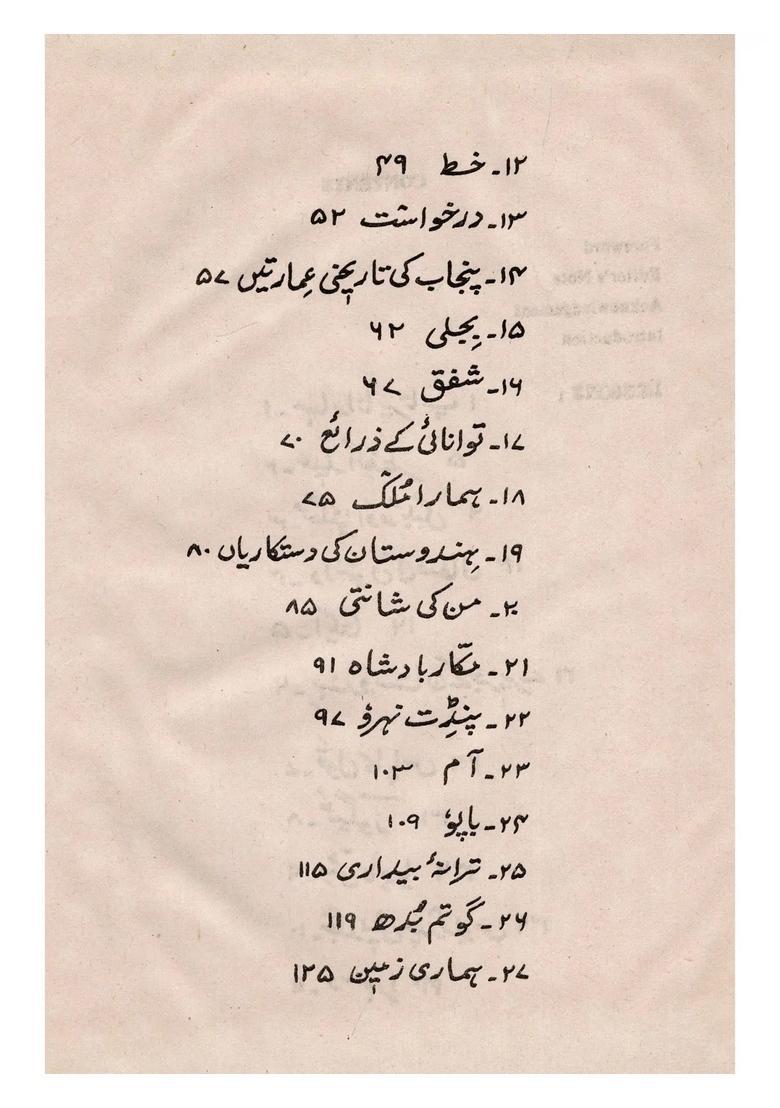 ۱۲۔ خط ۴۹
۱۳۔ درخواست ۵۲
۱۴۔ پنجاب کی تاریخی عِمارتیں ۵۷
۱۵۔ بِجلی ۶۲
۱۶۔ شفق ۶۷
۱۷۔ توانائی کے ذرائع ۷۰
۱۸۔ ہمارا مُلک ۷۵
۱۹۔ ہِندوستان کی دستکاریاں ۸۰
۲۰۔ من کی شانتی ۸۵
۲۱۔ مکّار بادشاہ ۹۱
۲۲۔ پنڈِت نہرؤ ۹۷
۲۳۔ آم ۱۰۳
۲۴۔ باپوٗ ۱۰۹
۲۵۔ ترانۂ بیداری ۱۱۵
۲۶۔ گوتم بُدھ ۱۱۹
۲۷۔ ہماری زمین ۱۲۵